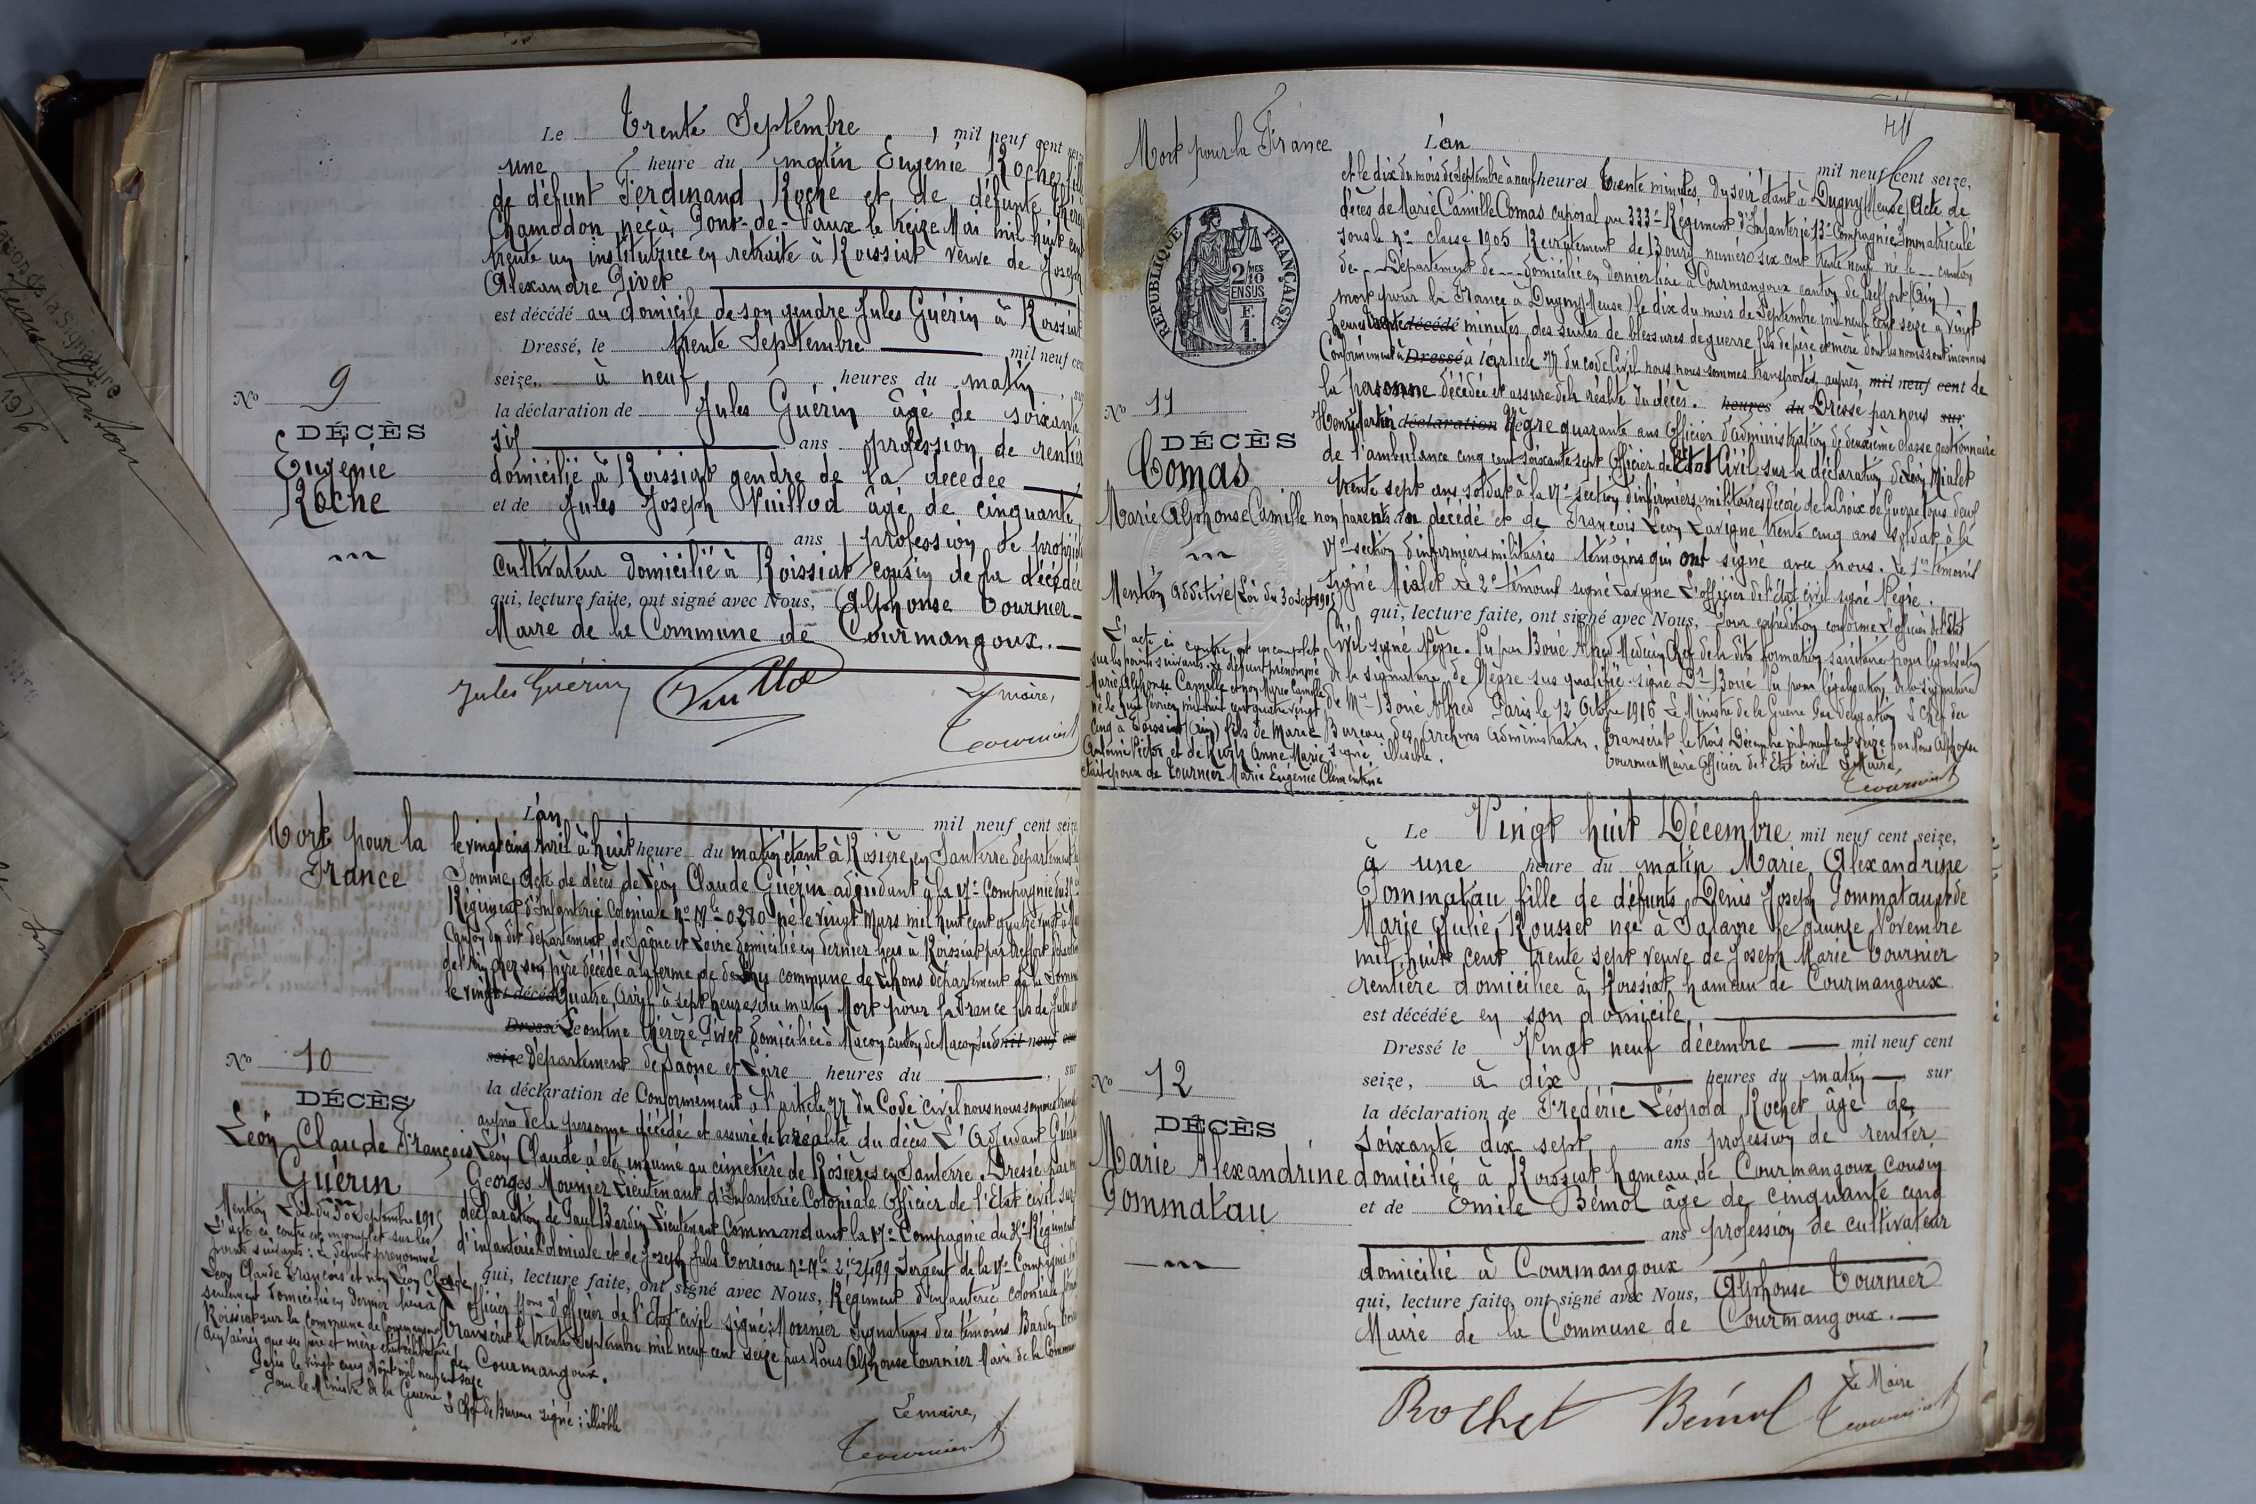 Le Trente Septembre, mil neuf cent seize
une heure du matin Eugénie Roche, fille
de défunt Ferdinand Roche et de défunte Thérèse
Chamddon, née à Pont-de-Vaux le treize Mai mil huit cent
trente un institutrice en retraite à Roissiat veuve de Joseph
Alexandre Pivet
est décédé au domicile de son gendre Jules Guérin à Roissiat
Dressé, le trente Septembre mil neuf cent
seize, à neuf heures du matin, sur
la déclaration de Jules Guérin âgé de soixante
six ans profession de rentier
domicilié à Roissiat gendre de la décédée
et de Jules Joseph Vuillod âgé de cinquante
ans profession de propriét
cultivateur domicilié à Roissiat cousin de la décédée
qui, lecture faite, ont signé avec Nous, Alphonse Tournier
Maire de la Commune de Courmangoux.
Jules Guérin Vuillod Le maire,
Tournier
No 9
DÉCÈS
Eugénie
Roche
Mort pour la
France
L'an mil neuf cent seize
le vingt cinq Avril à huit heure du matin étant à Rosière en Santerre département
Somme, Acte de décès de Léon Claude Guérin adjudant à la 17e Compagnie du
Régiment d'Infanterie Coloniale No Mle 0280 né le vingt Mars mil huit cent quatre vingt
canton du dit département de Saône et Loire domicilié en dernier lieu à Roissiat par Treffort
de l'Ain chez son père décédé à la ferme de commune de Lihons département de la Somme
le vingt décédé quatre Avril à sept heures du matin Mort pour la France fils de Jules
Dressé Léontine Thérèze Pivet domiciliés à Macon canton de Macon Sud mil neuf cent
seize département de Saône et Loire heures du, sur
la déclaration de Conformément à l'article 77 du Code civil nous nous sommes
auprès de la personne décédée et assuré de la réalité du décès L'Adjudant Guérin
Léon Claude à été inhumé au cimetière de Rosières en Santerre. Dressé par
Georges Mounier Lieutenant d'Infanterie Coloniale Officier de l'Etat civil sur
déclaration de Paul Bardin Lieutenant Commandant la 17e Compagnie du Régiment
d'infanterie Coloniale et de Joseph Jules No Mle Sergent de la Compagnie
qui, lecture faite, ont signé avec Nous, Régiment d'infanterie coloniale
Officier d'officier de l'Etat civil signé: Mounier Signatures des témoins Bardin
Transcrit le trente Septembre mil neuf cent seize par Nous Alphonse Tournier Maire de la Commune
de Courmangoux.
Le maire,
Tournier
No 10
DÉCÈS
Léon Claude François
Guérin
Mention Loi du 30 Septembre 1915
L'acte ci contre est incomplet sur les
points suivants: Le défunt prénommé
Léon Claude François et non Léon Claude
seulement domicilié en dernier lieu à
Roissiat sur la commune de Courmangoux
(Ain) ainsi que ses père et mère
Paris le vingt cinq Août mil neuf cent seize
Pour le Ministre de la Guerre
S Chef de Bureau signé: illisible
Mort pour la France
L'an mil neuf cent seize,
et le dix du mois de Septembre à neuf heures trente minutes, du soir étant à Dugny (Meuse) Acte de
décès de Marie Camille Comas caporal au 333e Régiment d'Infanterie 13e Compagnie Immatriculé
sous le No classe 1905 Recrutement de Bourg numéro six cent trente neuf né le canton
de Département de domicilié en dernier lieu à Courmangoux canton de Treffort (Ain)
mort pour la France à Dugny (Meuse) le dix du mois de Septembre mil neuf cent seize à vingt
heures trente décédé minutes, des suites de blessures de guerre fils de père et mère dont les noms sont inconnus
Conformément à Dressé à l'article 77 du code Civil nous nous sommes transportés auprès mil neuf cent de
la personne décédée et assuré de la réalité du décès. heures du Dressé par nous sur
Henri Martin déclaration Nègre quarante ans Officier d'administration de deuxième classe gestionnaire
de l'ambulance cinq cent soixante sept Officier de l'Etat Civil sur la déclaration de Léon Mialet
trente sept ans soldat à la 17e section d'infirmiers militaires décoré de la Croix de Guerre tous deux
non parents du décédé et de François Léon Lavigne trente cinq ans soldat à la
17e section d'infirmiers militaires témoins qui ont signé avec nous. Le 1er témoin
signé Mialet Le 2e témoin signé Lavigne L'officier de l'état civil signé Nègre.
qui, lecture faite, ont signé avec Nous, Pour expédition conforme L'officier de l'Etat
Civil signé Nègre. Vu par Boué Alfred Médecin Chef de la dite formation sanitaire pour légalisation
de la signature de Nègre sus qualifié. signé Dr Boué Vu pour légalisation de la signature
de Mr Boué Alfred Paris le 12 Octobre 1916 Le Ministre de la Guerre Par délégation S Chef du
Bureau des Archives Administratives. Transcrit le trois Décembre mil neuf cent seize par Nous Alphonse
signé illisible. Tournier Maire Officier de l'Etat civil Le Maire,
Tournier
No 11
DÉCÈS
Comas
Marie Alphonse Camille
Mention additive (Loi du 30 Sept 1915)
L'acte ci contre est incomplet
sur les points suivants: Le défunt prénommé
Marie Alphonse Camille et non Marie Camille
né le Février mil huit cent quatre vingt
cinq à Roissiat (Ain) fils de Marie
Antoine Victor et de Anne Marie
était époux de Tournier Marie Eugénie Clémentine
Le Vingt huit Décembre mil neuf cent seize,
à une heure du matin Marie Alexandrine
Pommatau fille de défunts Denis Joseph Pommatau et de
Marie Julie Rousset née à Salavre le quinze Novembre
mil huit cent trente sept veuve de Joseph Marie Tournier
rentière domiciliée à Roissiat hameau de Courmangoux
est décédée en son domicile
Dressé le Vingt neuf décembre mil neuf cent
seize, à dix heures du matin sur
la déclaration de Frédéric Léopold Rochet âgé de
soixante dix sept ans profession de rentier
domicilié à Roissiat hameau de Courmangoux cousin
et de Emile Bémol âgé de cinquante cinq
ans profession de cultivateur
domicilié à Courmangoux
qui, lecture faite, ont signé avec Nous, Alphonse Tournier
Maire de la Commune de Courmangoux.
Rochet Bémol Le Maire
Tournier
No 12
DÉCÈS
Marie Alexandrine
Pommatau
RÉPUBLIQUE FRANÇAISE
2/10 EN SUS
F. 1.